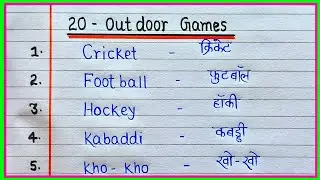 20 - Outdoor Games
1. Cricket - क्रिकेट
2. Football - फुटबॉल
3. Hockey - हॉकी
4. Kabaddi - कबड्डी
5. Kho - kho - खो - खो